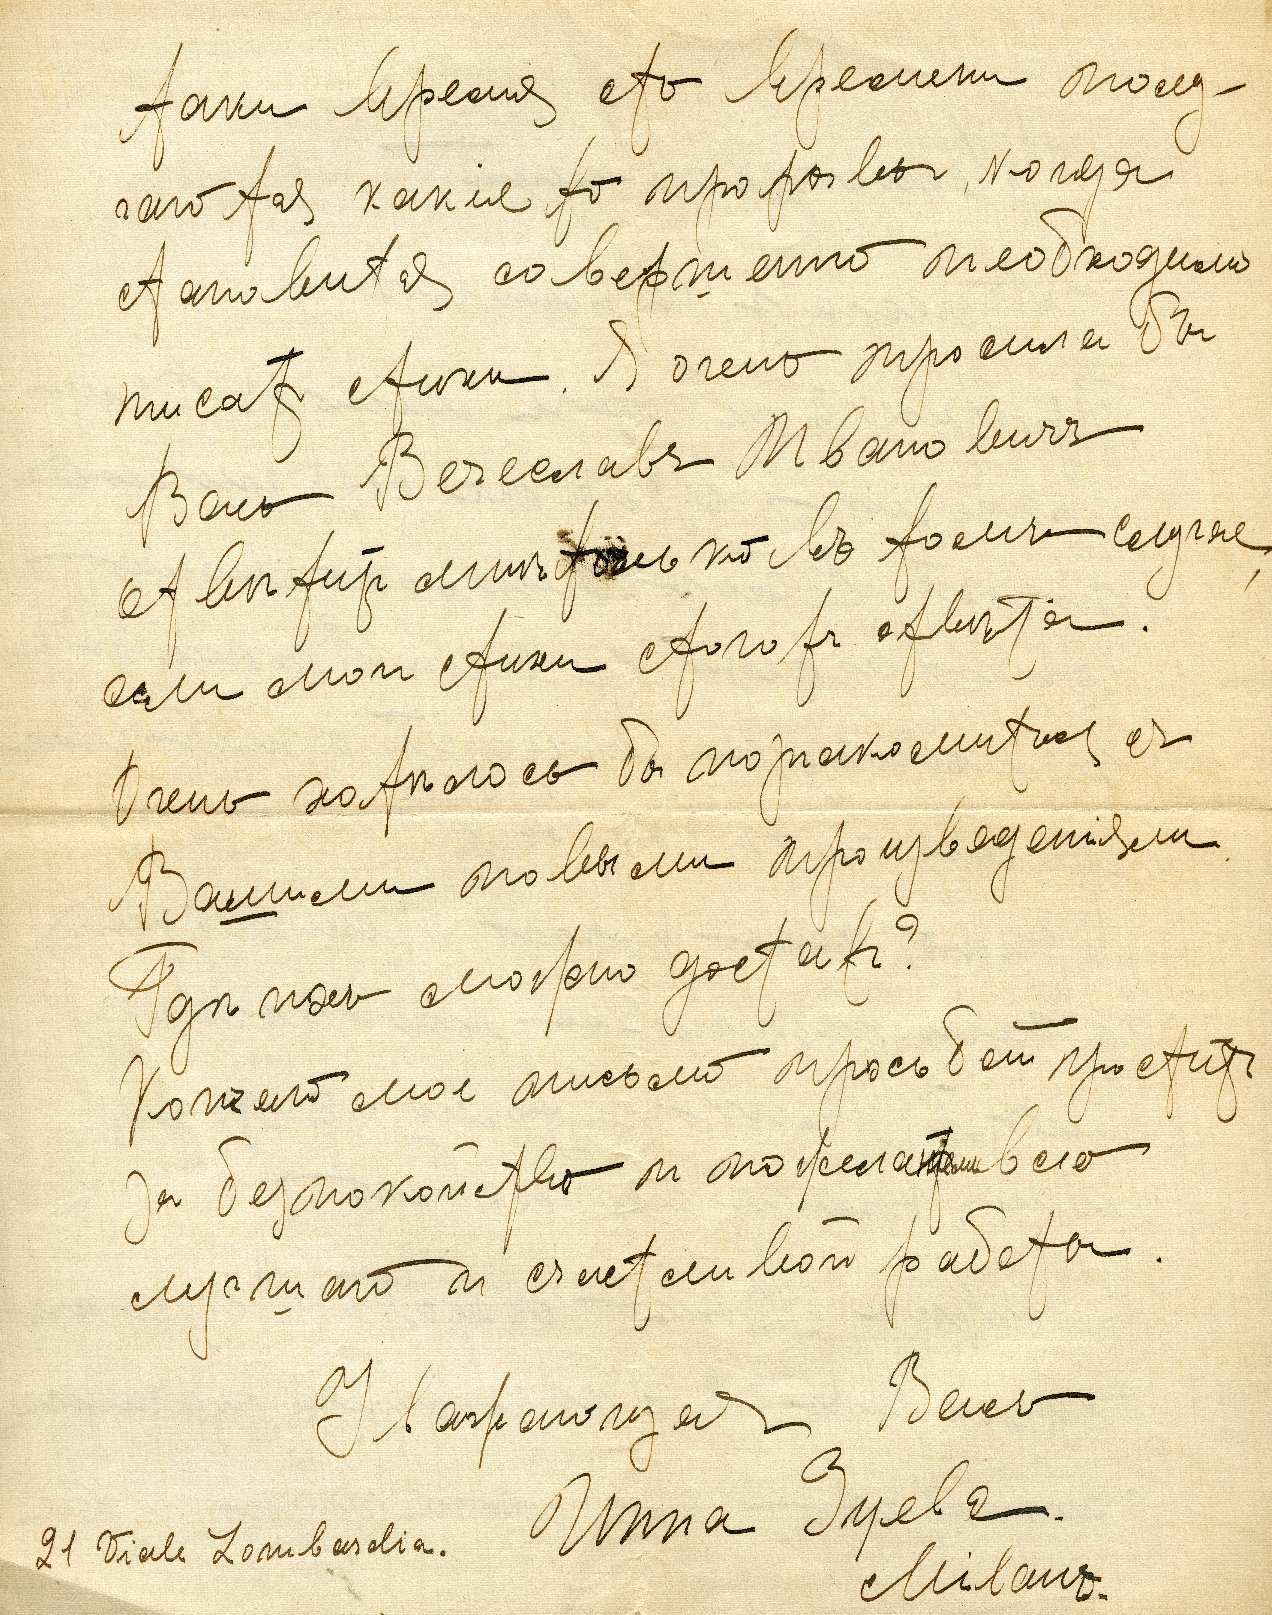 таки время отъ времени полу-
чаются какіе то прорывы, когда
становится совершенно необходимо
писать стихи. Я очень просила бы
Васъ Вечеславъ Ивановичъ
отвѣтить мнѣ только въ томъ случае,
если мои стихи стоютъ отвѣта.
Очень хотѣлось бы познакомиться съ
Вашими новыми произведеніями.
Гдѣ ихъ можно достать?
Кончаю мое письмо просьбой простить
за безпокойство и пожеланіемъ всего
лучшаго и счастливой работы.
Уважающая Васъ
Инна Зуева.
21 Viale Lombardia.
Milano.